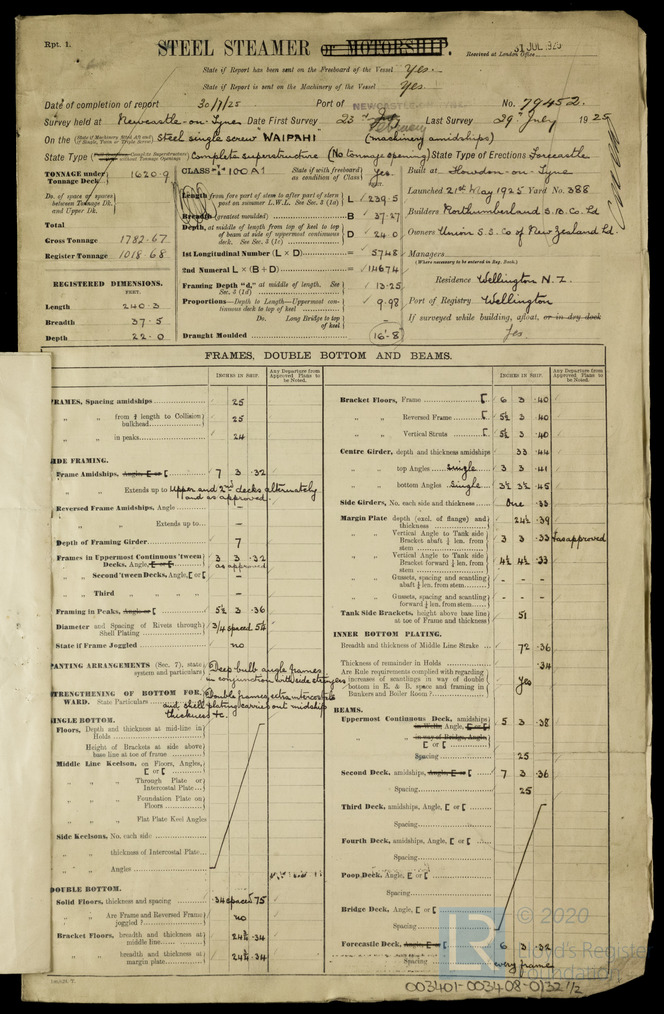 Rpt. 1.
STEEL STEAMER or MOTORSHIP.
Received at London Office 31 JUL 1925
State if Report has been sent on the Freeboard of the Vessel Yes.
State if Report is sent on the Machinery of the Vessel Yes.
Date of completion of report 30/7/25 Port of NEWCASTLE-ON-TYNE No. 79452.
Survey held at Newcastle-on-Tyne Date First Survey 23rd February Last Survey 29th July 1925
On the (State if Machinery fitted Aft and if Single, Twin or Triple Screw) Steel single screw "WAIPAHI" (machinery amidships)
State Type Complete superstructure (No tonnage opening) State Type of Erections Forecastle
TONNAGE under Tonnage Deck 1620.9
Do. of space or spaces between Tonnage Dk. and Upper Dk.
Total
Gross Tonnage 1782.67
Register Tonnage 1018.68
REGISTERED DIMENSIONS.
FEET.
Length 240.3
Breadth 37.5
Depth 22.0
CLASS 100A1 State if with freeboard as condition of Class Yes.
Length from fore part of stem to after part of stern post on summer L.W.L. See Sec. 3 (1a) L 239.5
Breadth (greatest moulded) B 37.27
Depth, at middle of length from top of keel to top of beam at side of uppermost continuous deck. See Sec. 3 (1c) D 24.0
1st Longitudinal Number (L × D) = 5748
2nd Numeral L × (B + D) = 14674
Framing Depth "d," at middle of length. See Sec. 3 (1d) 13.25
Proportions—Depth to Length—Uppermost continuous deck to top of keel 9.98
Do. Long Bridge to top of keel –
Draught Moulded 16'-8"
Built at Howdon-on-Tyne
Launched 21st May 1925 Yard No. 388
Builders Northumberland S.B. Co. Ld
Owners Union S.S. Co. of New Zealand Ld.
Managers
(Where necessary to be entered in Reg. Book.)
Residence Wellington N.Z.
Port of Registry Wellington
If surveyed while building, afloat, or in dry dock
Yes
FRAMES, DOUBLE BOTTOM AND BEAMS.
INCHES IN SHIP.
Any Departure from Approved Plans to be Noted.
FRAMES, Spacing amidships 25
„ „ from ⅗ length to Collision bulkhead 25
„ „ in peaks 24
SIDE FRAMING.
Frame Amidships, Angle, E or [ 7 3 .32
„ „ Extends up to Upper and 2nd decks alternately and as approved.
Reversed Frame Amidships, Angle –
„ „ Extends up to –
Depth of Framing Girder 7
Frames in Uppermost Continuous 'tween Decks, Angle, E or [ 3 3 .32
as approved
„ „ Second 'tween Decks, Angle, E or [ –
„ „ Third „ „ „ „ –
Framing in Peaks, Angle or [ 5½ 3 .36
Diameter and Spacing of Rivets through Shell Plating 3/4 spaced 5¼
State if Frame Joggled no
PANTING ARRANGEMENTS (Sec. 7), state system and particulars Deep bulb angle frames in conjunction with side stringers
STRENGTHENING OF BOTTOM FORWARD. State Particulars Double frames, extra intercostals and shell plating carries out midship thickness &c.
SINGLE BOTTOM.
Floors, Depth and thickness at mid-line in Holds
Height of Brackets at side above base line at toe of frame
Middle Line Keelson, on Floors, Angles, E or [
„ „ „ Through Plate or Intercostal Plate
„ „ „ Foundation Plate on Floors
„ „ „ Flat Plate Keel Angles
Side Keelsons, No. each side
„ „ thickness of Intercostal Plate
„ „ Angles
DOUBLE BOTTOM.
Solid Floors, thickness and spacing .34 spaced 75
„ „ Are Frame and Reversed Frame joggled? no
Bracket Floors, breadth and thickness at middle line 24¼ .34
„ „ breadth and thickness at margin plate 24¼ .34
INCHES IN SHIP.
Any Departure from Approved Plans to be Noted.
Bracket Floors, Frame [ 6 3 .40
„ „ Reversed Frame [ 5½ 3 .40
„ „ Vertical Struts [ 5½ 3 .40
Centre Girder, depth and thickness amidships 33 .44
„ „ top Angles single 3 3 .41
„ „ bottom Angles single 3½ 3½ .45
Side Girders, No. each side and thickness One .33
Margin Plate depth (excl. of flange) and thickness 24½ .39
„ „ Vertical Angle to Tank side Bracket abaft ¼ len. from stem 3 3 .33 as approved
„ „ Vertical Angle to Tank side Bracket forward ¼ len. from stem 4½ 4½ .33
„ „ Gussets, spacing and scantling abaft ¼ len. from stem – – –
„ „ Gussets, spacing and scantling forward ¼ len. from stem – – –
Tank Side Brackets, height above base line at toe of Frame and thickness 51
INNER BOTTOM PLATING.
Breadth and thickness of Middle Line Strake 72 .36
Thickness of remainder in Holds .34
Are Rule requirements complied with regarding increases of scantlings in way of double bottom in E. & B. space and framing in Bunkers and Boiler Room? Yes
BEAMS.
Uppermost Continuous Deck, amidships in Wells, Angle, E or [ 5 3 .38
in way of Bridge, Angle, E or [
Spacing 25
Second Deck, amidships, Angle, E or [ 7 3 .36
Spacing 25
Third Deck, amidships, Angle, E or [
Spacing
Fourth Deck, amidships, Angle, E or [
Spacing
Poop Deck, Angle, E or [
Spacing
Bridge Deck, Angle, E or [
Spacing
Forecastle Deck, Angle, E or [ 6 3 .32
Spacing every frame
LR
© 2020
Lloyd's Register
Foundation
003401-003408-0132 1/2